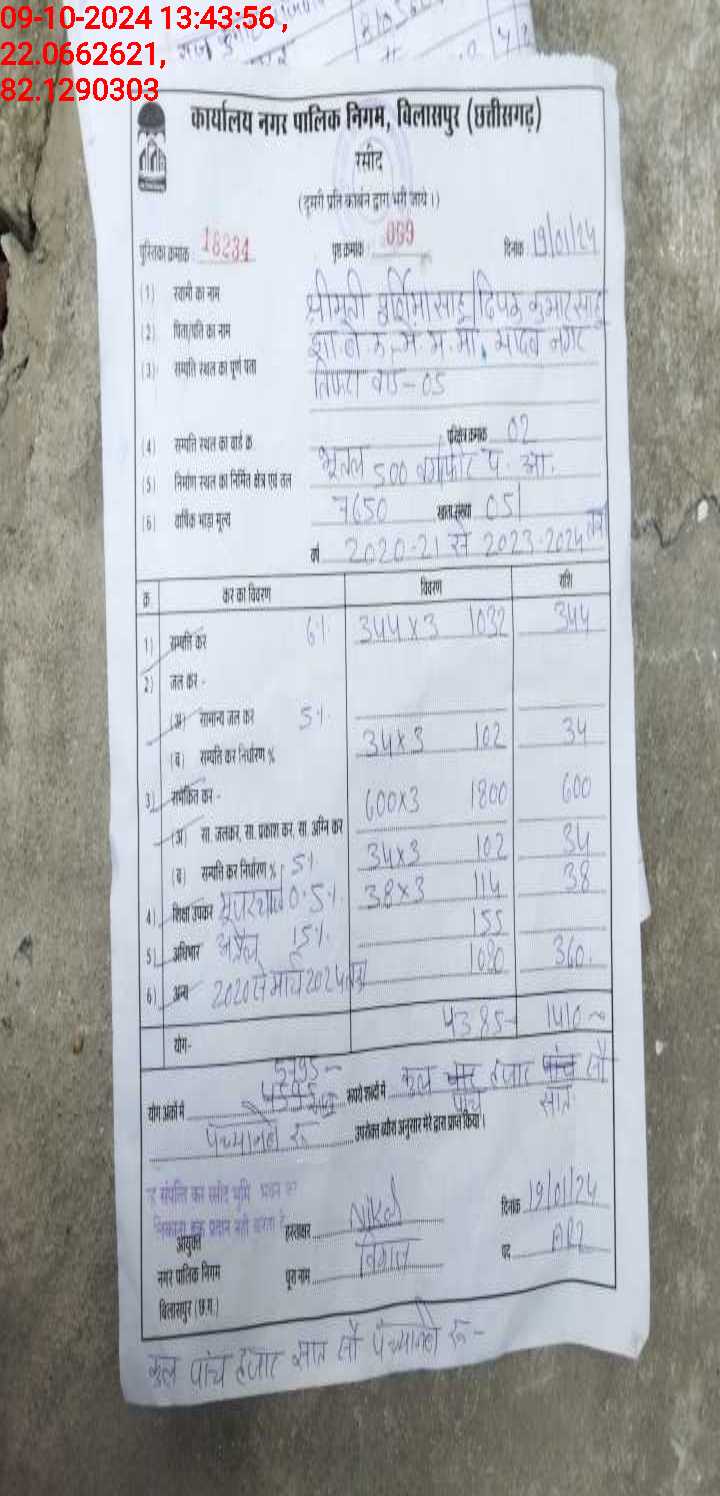 09-10-2024 13:43:56 ,
22.0662621,
82.1290303
कार्यालय नगर पालिक निगम, बिलासपुर (छत्तीसगढ़)
रसीद
(दूसरी प्रति कार्बन द्वारा भरी जाये।)
पुस्तिका क्रमांक 18234 पृष्ठ क्रमांक 099 दिनांक 19/01/24
(1) स्वामी का नाम श्रीमती साहू/दिपक कुमार साहू
(2) पिता/पति का नाम यादव नगर
(3) सम्पति स्थल का पूर्ण पता तिफरा वार्ड-05
(4) सम्पति स्थल का वार्ड क्र परिक्षेत्र क्रमांक 02
(5) निर्माण स्थल का निर्मित क्षेत्र एवं तल भूतल 500 वर्गफीट प. आ.
(6) वार्षिक भाड़ा मूल्य 7650 खाता संख्या 051
वर्ष 2020-21 से 2023-2024 तक
क्र कर का विवरण विवरण राशि
1) सम्पति कर 6% 344x3 1032 344
2) जल कर -
(अ) सामान्य जल कर 5%
(ब) सम्पति कर निर्धारण % 34x3 102 34
3) समेकित कर - 600x3 1800 600
(अ) सा. जलकर, सा. प्रकाश कर, सा. अग्नि कर
(ब) सम्पति कर निर्धारण % 5% 34x3 102 34
4) शिक्षा उपकर 0.5% 38x3 114 38
5) अधिभार अप्रैल 15% 155
6) अन्य 2020 से मार्च 2024 तक 1080 360
योग- 4385- 1410
5795-
योग अंकों में 4595 रूपये शब्दों में कुल चार हजार पांच सौ
पांच सात
पंच्यानबे रू उपरोक्त ब्यौरा अनुसार मेरे द्वारा प्राप्त किया।
आयुक्त हस्ताक्षर दिनांक 19/01/24
नगर पालिक निगम पूरा नाम पद ARI
बिलासपुर (छ.ग.)
कुल पांच हजार सात सौ पंच्यानबे रू-